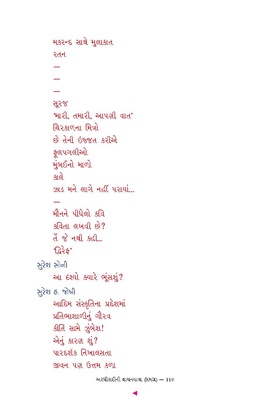 મકરન્દ સાથે મુલાકાત
રતન
—
—
—
સૂરજ
'મારી, તમારી, આપણી વાત'
ચિરકાળના મિત્રો
છે તેની ઇજ્જત કરીએ
ફૂલપગલીઓ
મુંબઈનો માળો
કાલે
ઝાડ મને લાગે નહીં પરાયાં...
—
મૌનને પીધેલો કવિ
કવિતા લખવી છે?
તેં જે નથી કહી...
'દ્વિરેફ'
સુરેશ સોની
આ દૃશ્યો ક્યારે ભૂંસશું?
સુરેશ હ. જોષી
આદિમ સંસ્કૃતિના પ્રદેશમાં
પ્રતિભાશાળીનું ગૌરવ
કીર્તિ સામે ઝુંબેશ!
એનું કારણ શું?
પારદર્શક નિખાલસતા
જીવન પણ ઉત્તમ કળા
અરધીસદીની વાચનયાત્રા — 119